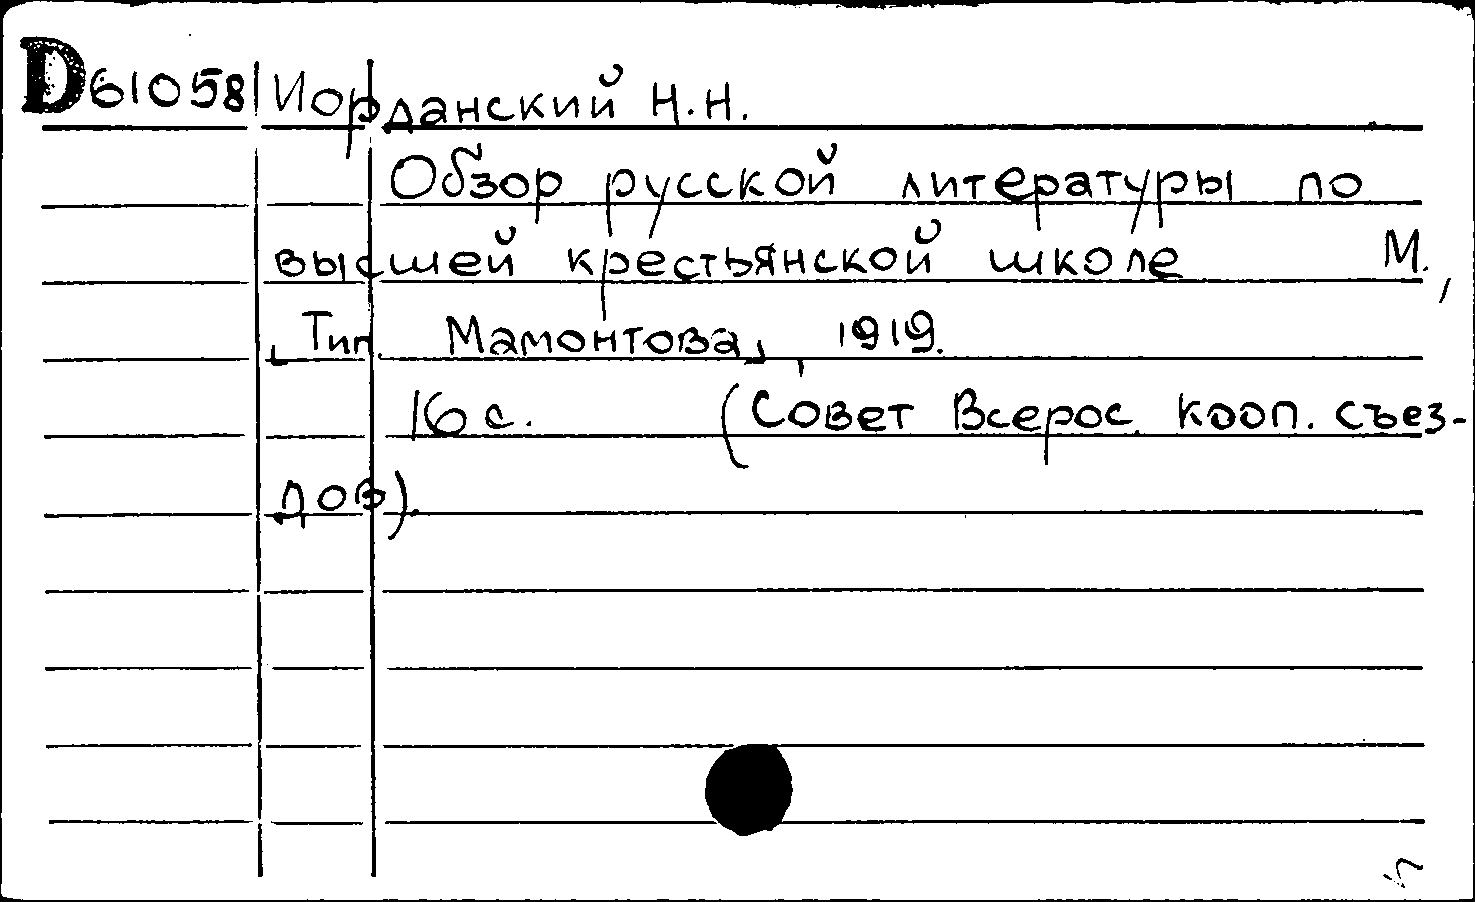 D61058 Иорданский Н.Н.
Обзор русской литературы по
высшей крестьянской школе М.,
„Тип. Мамонтова„, 1919.
16 с. (Совет Всерос. кооп. съез-
дов).